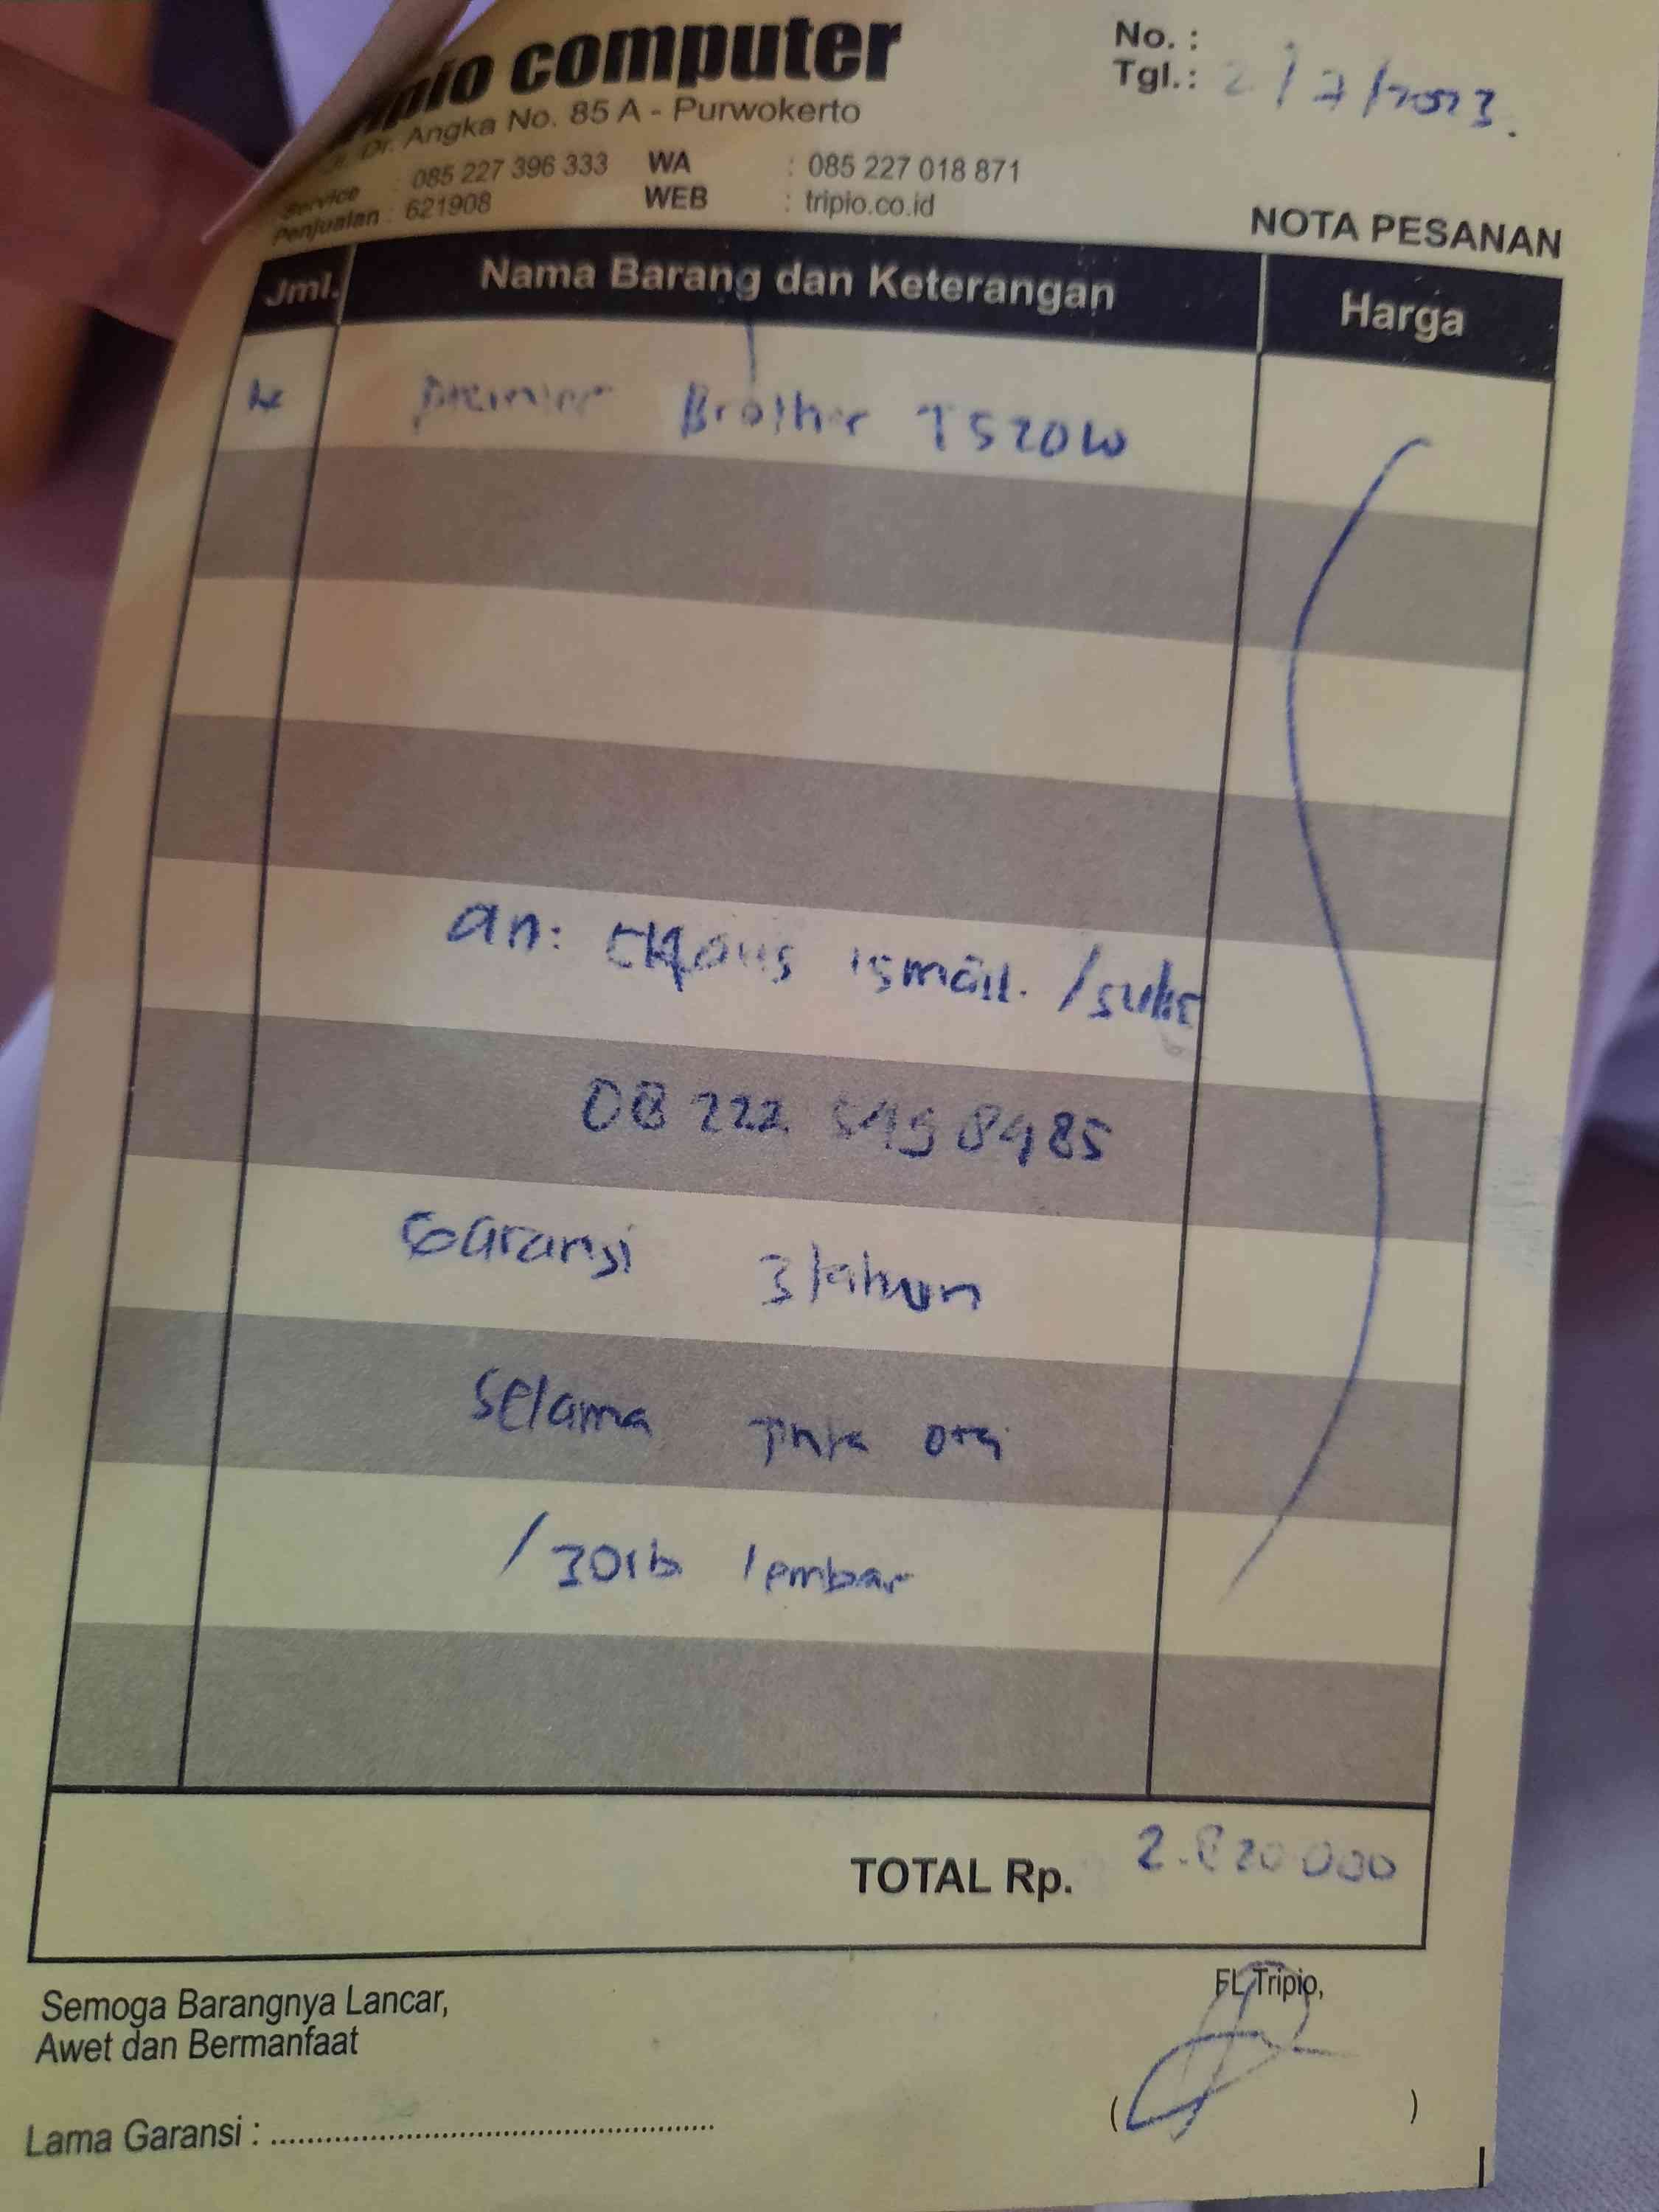 tripio computer
Jl. Dr. Angka No. 85 A - Purwokerto
Service : 085 227 396 333 WA : 085 227 018 871
Penjualan : 621908 WEB : tripio.co.id
No. :
Tgl.: 2/7/2023.
NOTA PESANAN
Jml. Nama Barang dan Keterangan Harga
Brother T520W
an: ismail.
Garansi 3 tahun
selama
/30rb lembar
TOTAL Rp. 2.820.000
Semoga Barangnya Lancar,
Awet dan Bermanfaat
FL Tripio,
( )
Lama Garansi :